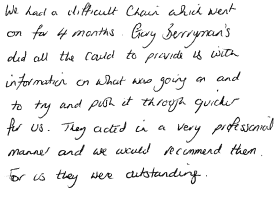 We had a difficult Chain which went
on for 4 months. Gary Berryman's
did all the could to provide us with
information on what was going on and
to try and push it through quicker
for us. They acted in a very professional
manner and we would recommend them.
For us they were outstanding.